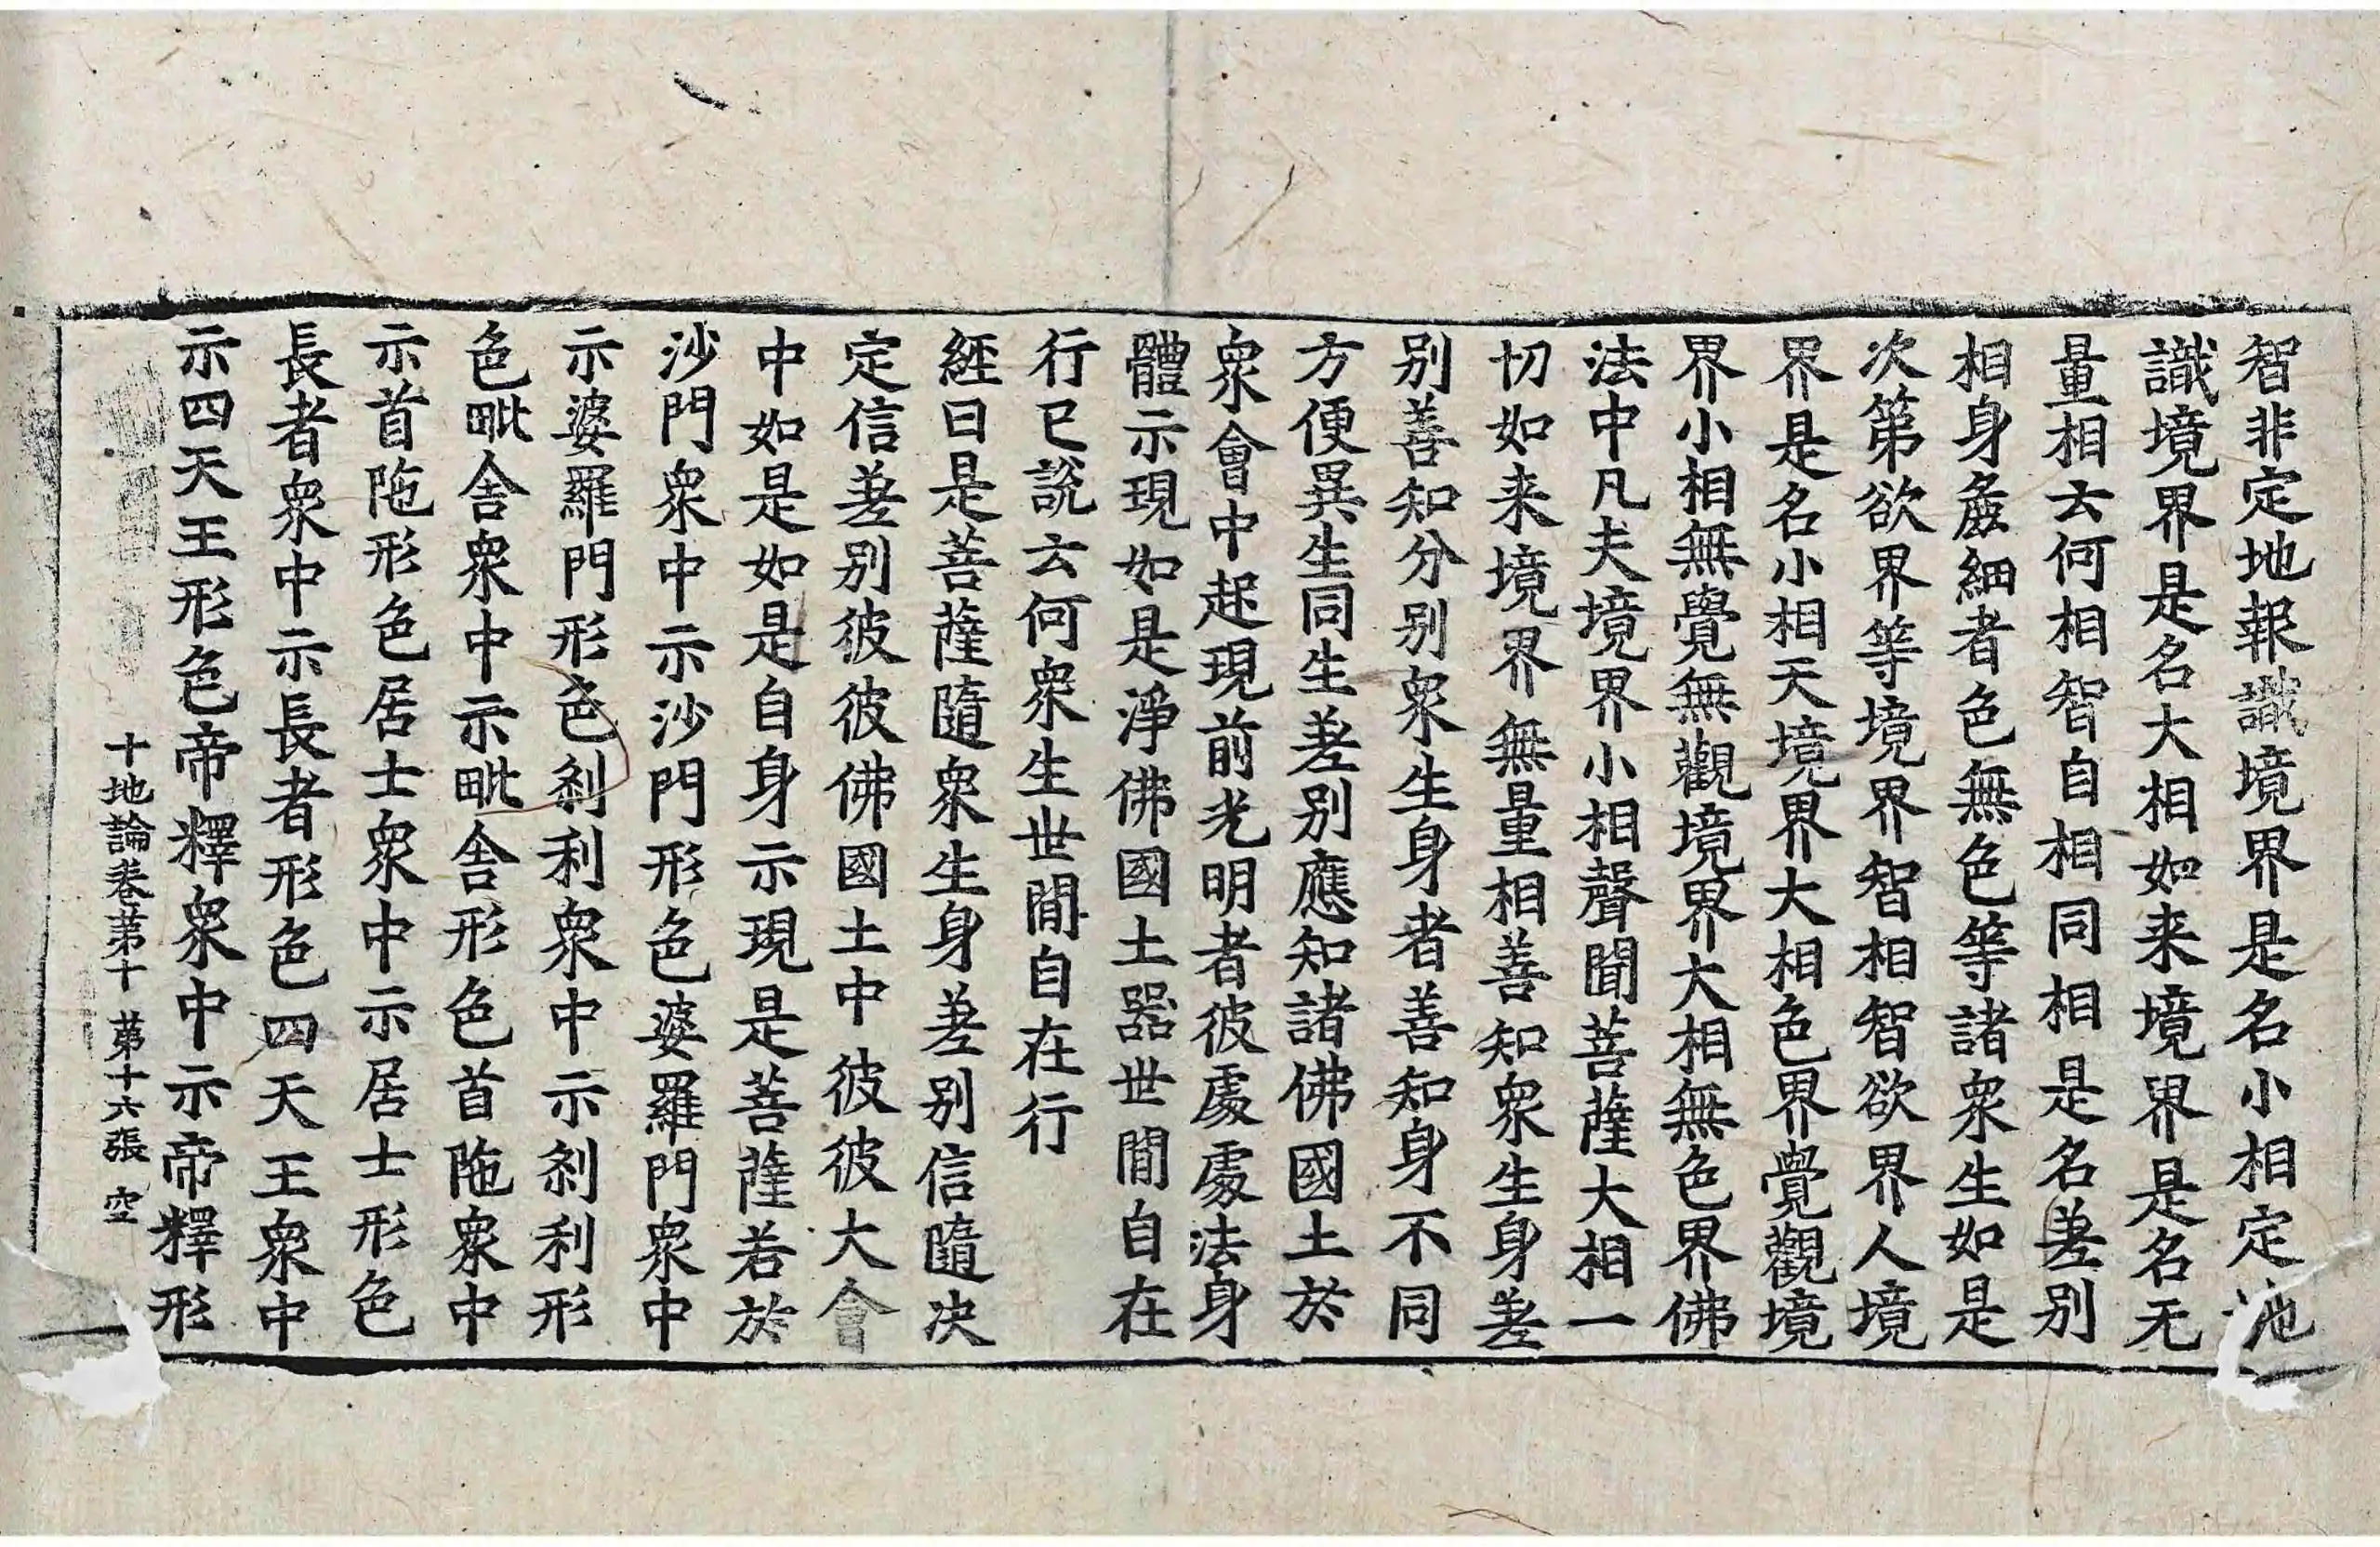 智非定地報識境界是名小相定地
識境界是名大相如来境界是名无
量相云何相智自相同相是名差别
相身麁細者色無色等諸衆生如是
次第欲界等境界智相智欲界人境
界是名小相天境界大相色界覺觀境
界小相無覺無觀境界大相無色界佛
法中凡夫境界小相聲聞菩薩大相一
切如来境界無量相善知衆生身差
别善知分别衆生身者善知身不同
方便異生同生差别應知諸佛國土於
衆會中起現前光明者彼處處法身
體示現如是淨佛國土器世間自在
行已說云何衆生世間自在行
經曰是菩薩隨衆生身差别信隨决
定信差别彼彼佛國土中彼彼大會
中如是如是自身示現是菩薩若於
沙門衆中示沙門形色婆羅門衆中
示婆羅門形色剎利衆中示剎利形
色毗舍衆中示毗舍形色首陁衆中
示首陁形色居士衆中示居士形色
長者衆中示長者形色四天王衆中
示四天王形色帝釋衆中示帝釋形
十地論卷第十 第十六張 空